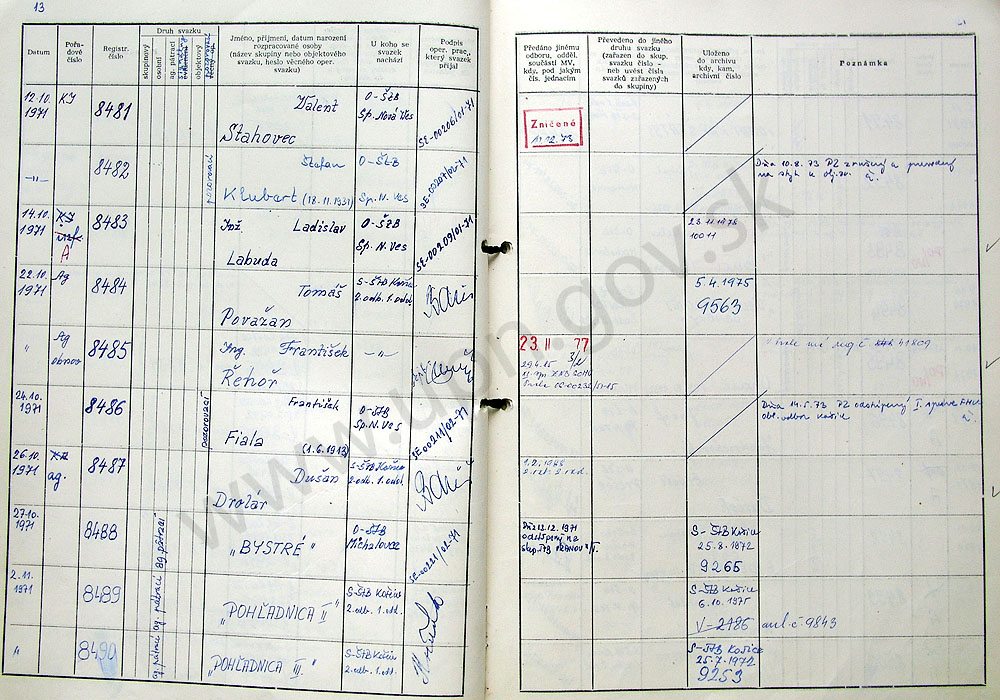 13
Datum
Pořadové číslo
Registr. číslo
Druh svazku
skupinový
osobní
ag. pátrací
objektový
Jméno, příjmení, datum narození
rozpracované osoby
(název skupiny nebo objektového
svazku, heslo věcného oper.
svazku)
U koho se
svazek
nachází
Podpis
oper. prac.
který svazek
přijal
Předáno jinému
odboru, odděl.
součásti MV,
kdy, pod jakým
čís. jednacím
Převedeno do jiného
druhu svazku
(zařazen do skup.
svazku číslo -
neb uvést čísla
svazků zařazených
do skupiny)
Uloženo
do archivu
kdy, kam,
archivní číslo
Poznámka
12.10. 1971
KI
8481
Valent
Stahovec
O-ŠtB
Sp. Nová Ves
SE-00206/01-71
Zničené
12.73
-„-
8482
pozorovací
Štefan
Klubert (18.11.1931)
O-ŠtB
Sp. N. Ves
SE-00207/02-71
Dňa 10.8.73 PZ zrušený a prevedený
na styk k obj. zv.
14.10. 1971
KI
A
8483
Inž Ladislav
Labuda
O-ŠtB
Sp. N. Ves
SE-00209/01-71
23.11.1978
10011
22.10. 1971
Ag
8484
Tomáš
Považan
S-ŠtB Košice
2. odb. 1. odd.
5.4.1975
9563
"
Ag
obnov
8485
Ing. František
Řehoř
-„-
23. II 77
24.10. 1971
8486
pozorovací
František
Fiala
(1.6.1913)
O-ŠtB
Sp. N. Ves
SE-00211/02-71
Dňa 14.5.73 PZ odstúpený I. správe FMV
obl. odbor Košice
26.10. 1971
ag.
8487
Dušan
Drolár
S-ŠtB Košice
2. odb. 1. odd.
1.2.1988
27.10. 1971
8488
ag. pátrací
„BYSTRÉ"
O-ŠtB
Michalovce
SE-00221/02-71
Dňa 13.12.1971
odstúpený na
skup. ŠtB VRANOV n/T.
S-ŠtB Košice
25.8.1972
9265
2.11. 1971
8489
ag. pátrací
„POHĽADNICA II"
S-ŠtB Košice
2. odb. 1. odd.
S-ŠtB Košice
6.10.1975
V-2486
arch. č. 9843
"
8490
ag. pátrací
„POHĽADNICA III."
S-ŠtB Košice
2. odb. 1. odd.
S-ŠtB Košice
25.7.1972
9253
www.upn.gov.sk